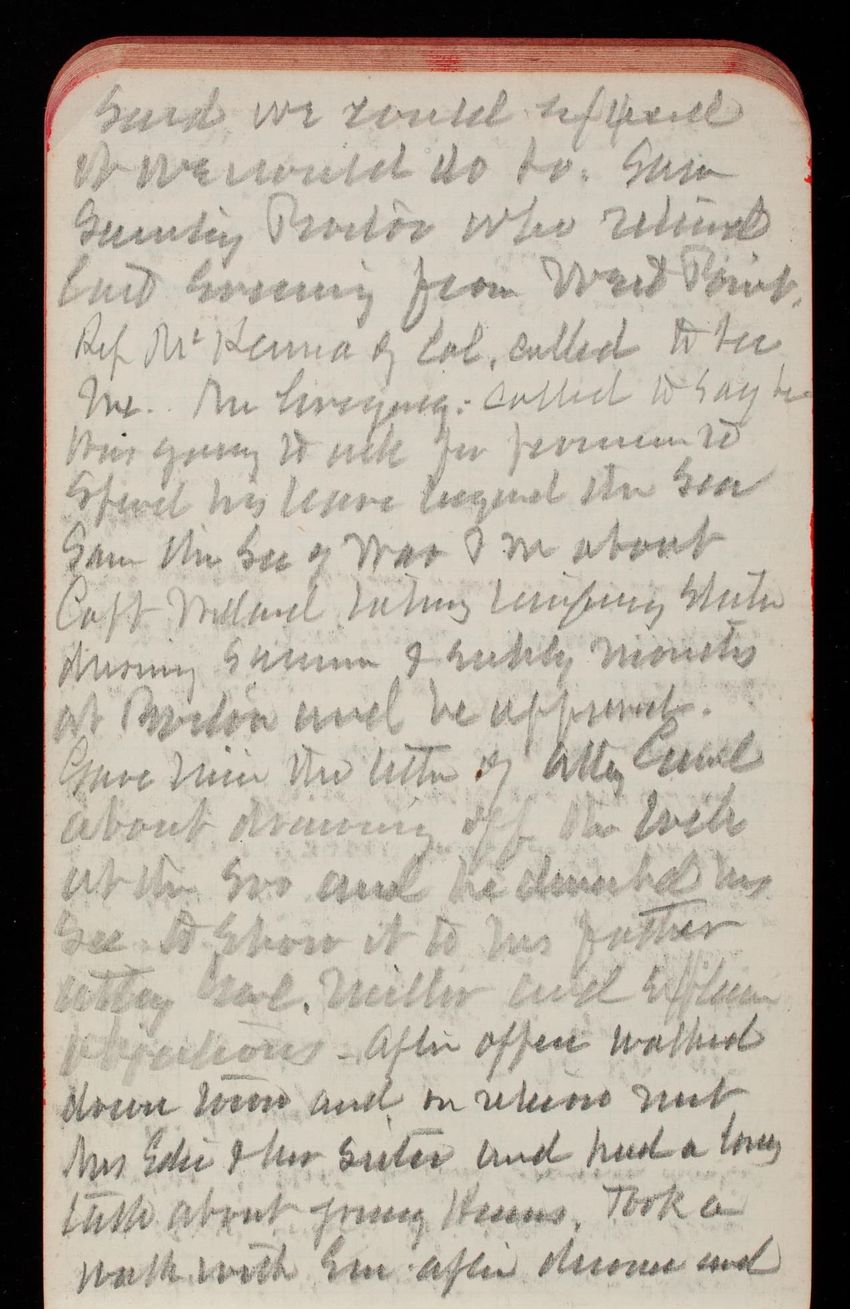 Said we could
it we would do to. Saw
Secretary Proctor who returned
last evening from West Point.
Rep McKenna of Cal. called to see
me. called to say he
was going to ask for permission to
spend his leave beyond the sea
Saw the Sec of War & me about
Capt taking
during summer & sickly months
at Proctor and he approved.
Gave him the letter of Atty Genl
about drawing off the
at the and he directed his
Sec to show it to his father
Atty Genl. Miller and explain
objections. After office walked
down town and on return met
Mrs & her sister and had a long
talk about young . Took a
walk with Em after dinner and